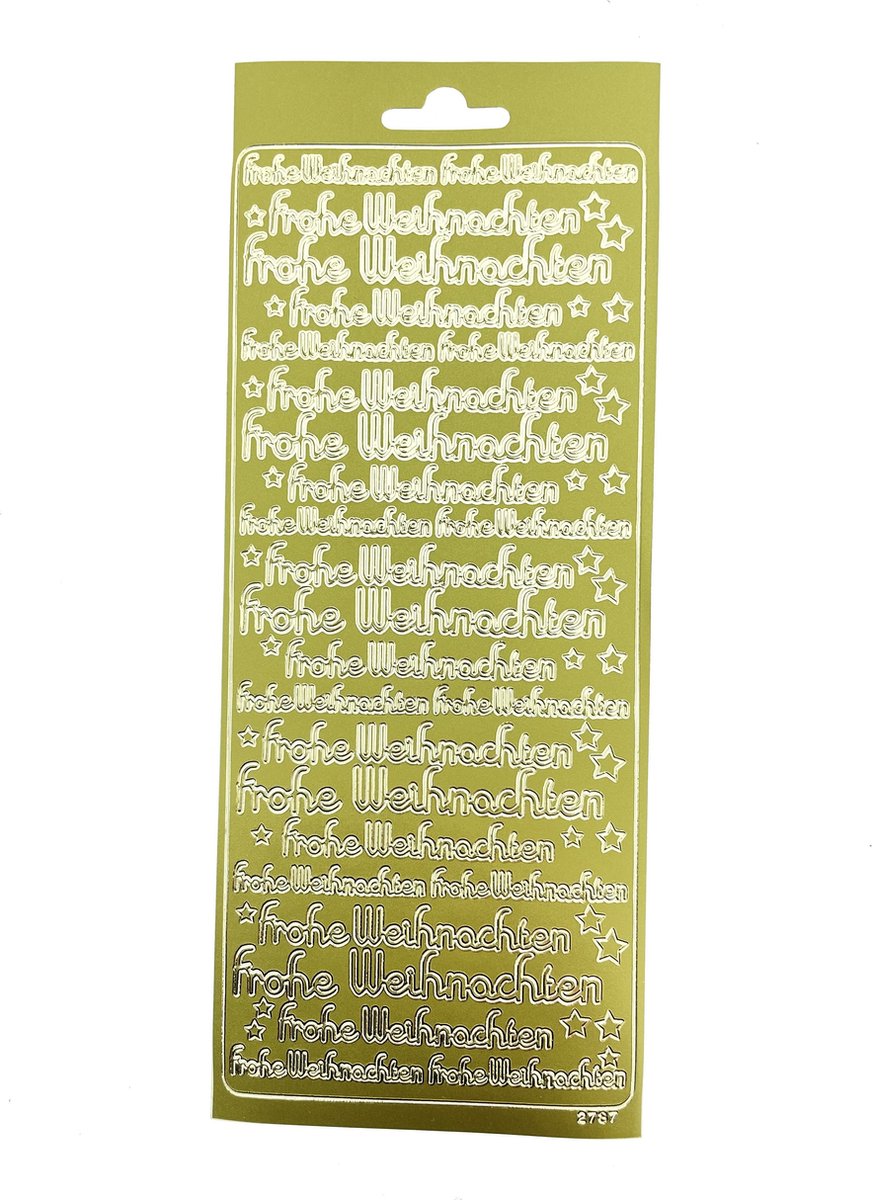 frohe Weihnachten frohe Weihnachten
frohe Weihnachten
frohe Weihnachten
frohe Weihnachten
frohe Weihnachten frohe Weihnachten
frohe Weihnachten
frohe Weihnachten
frohe Weihnachten
frohe Weihnachten frohe Weihnachten
frohe Weihnachten
frohe Weihnachten
frohe Weihnachten
frohe Weihnachten frohe Weihnachten
frohe Weihnachten
frohe Weihnachten
frohe Weihnachten
frohe Weihnachten frohe Weihnachten
frohe Weihnachten
frohe Weihnachten
frohe Weihnachten
frohe Weihnachten frohe Weihnachten
2787